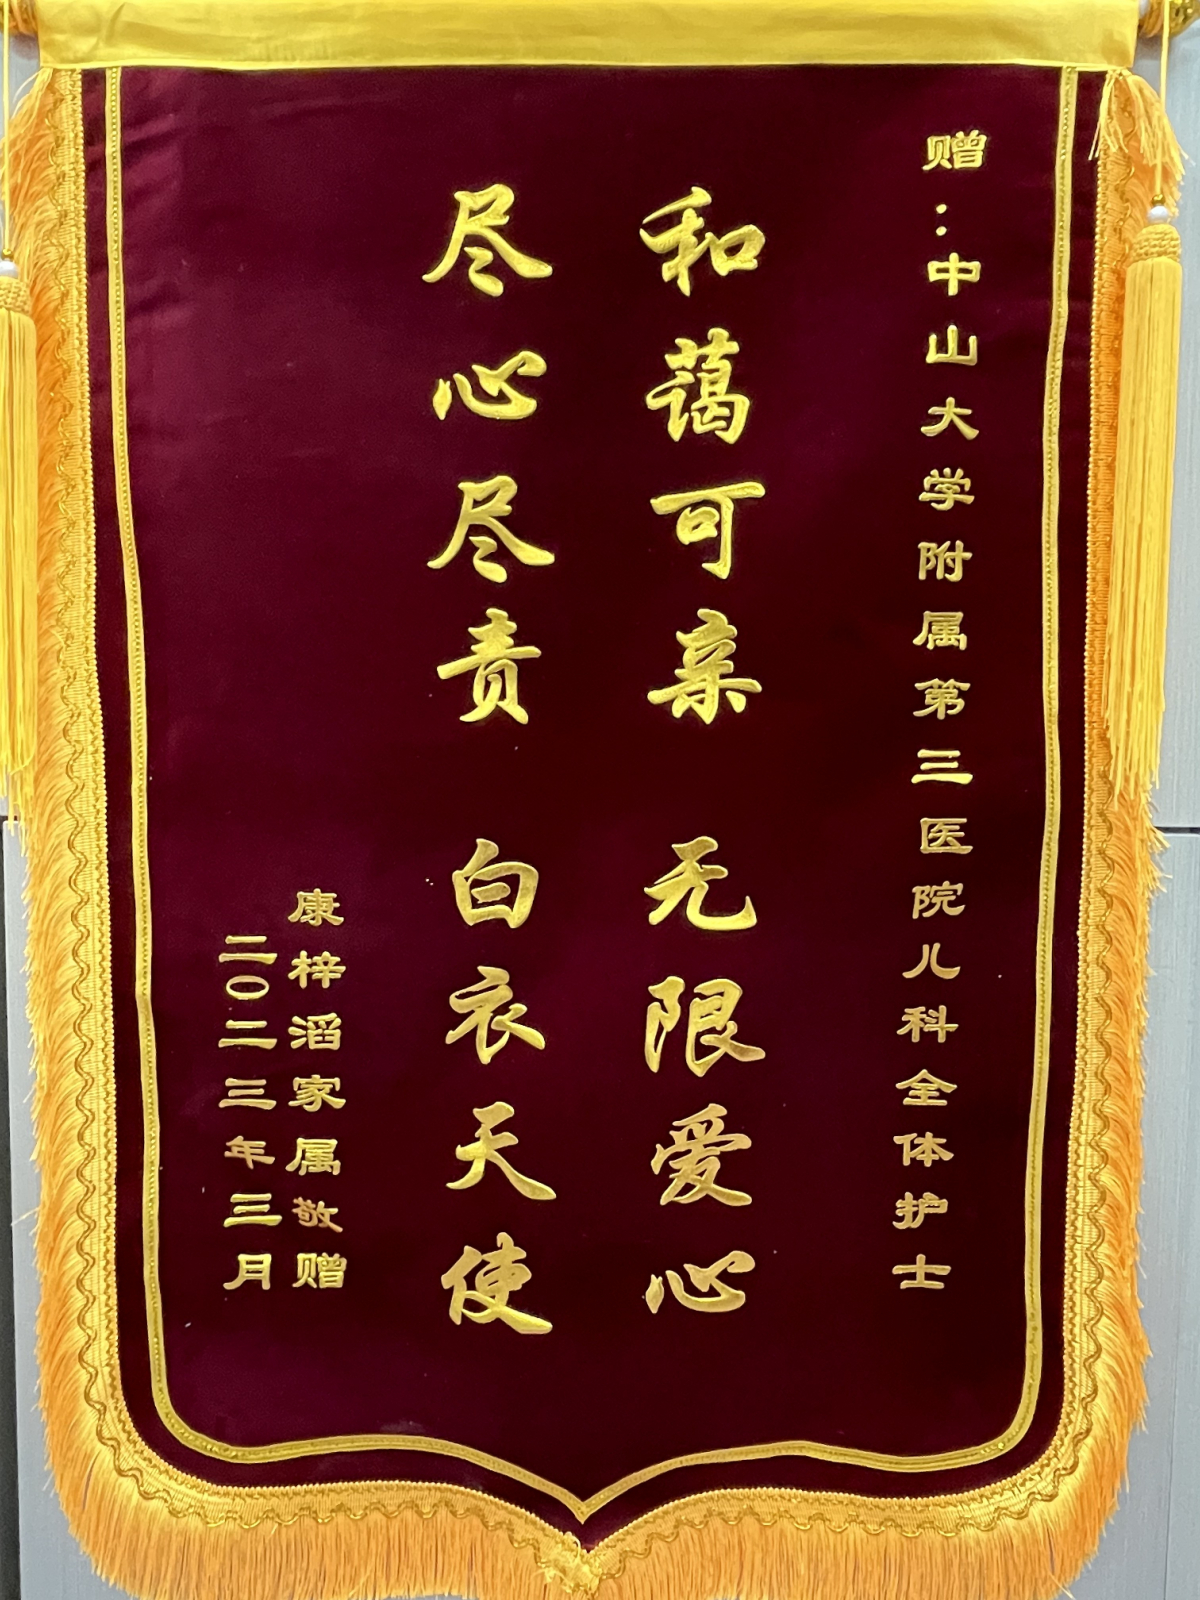 赠：中山大学附属第三医院儿科全体护士
和蔼可亲 无限爱心
尽心尽责 白衣天使
康梓滔家属敬赠
二〇二三年三月